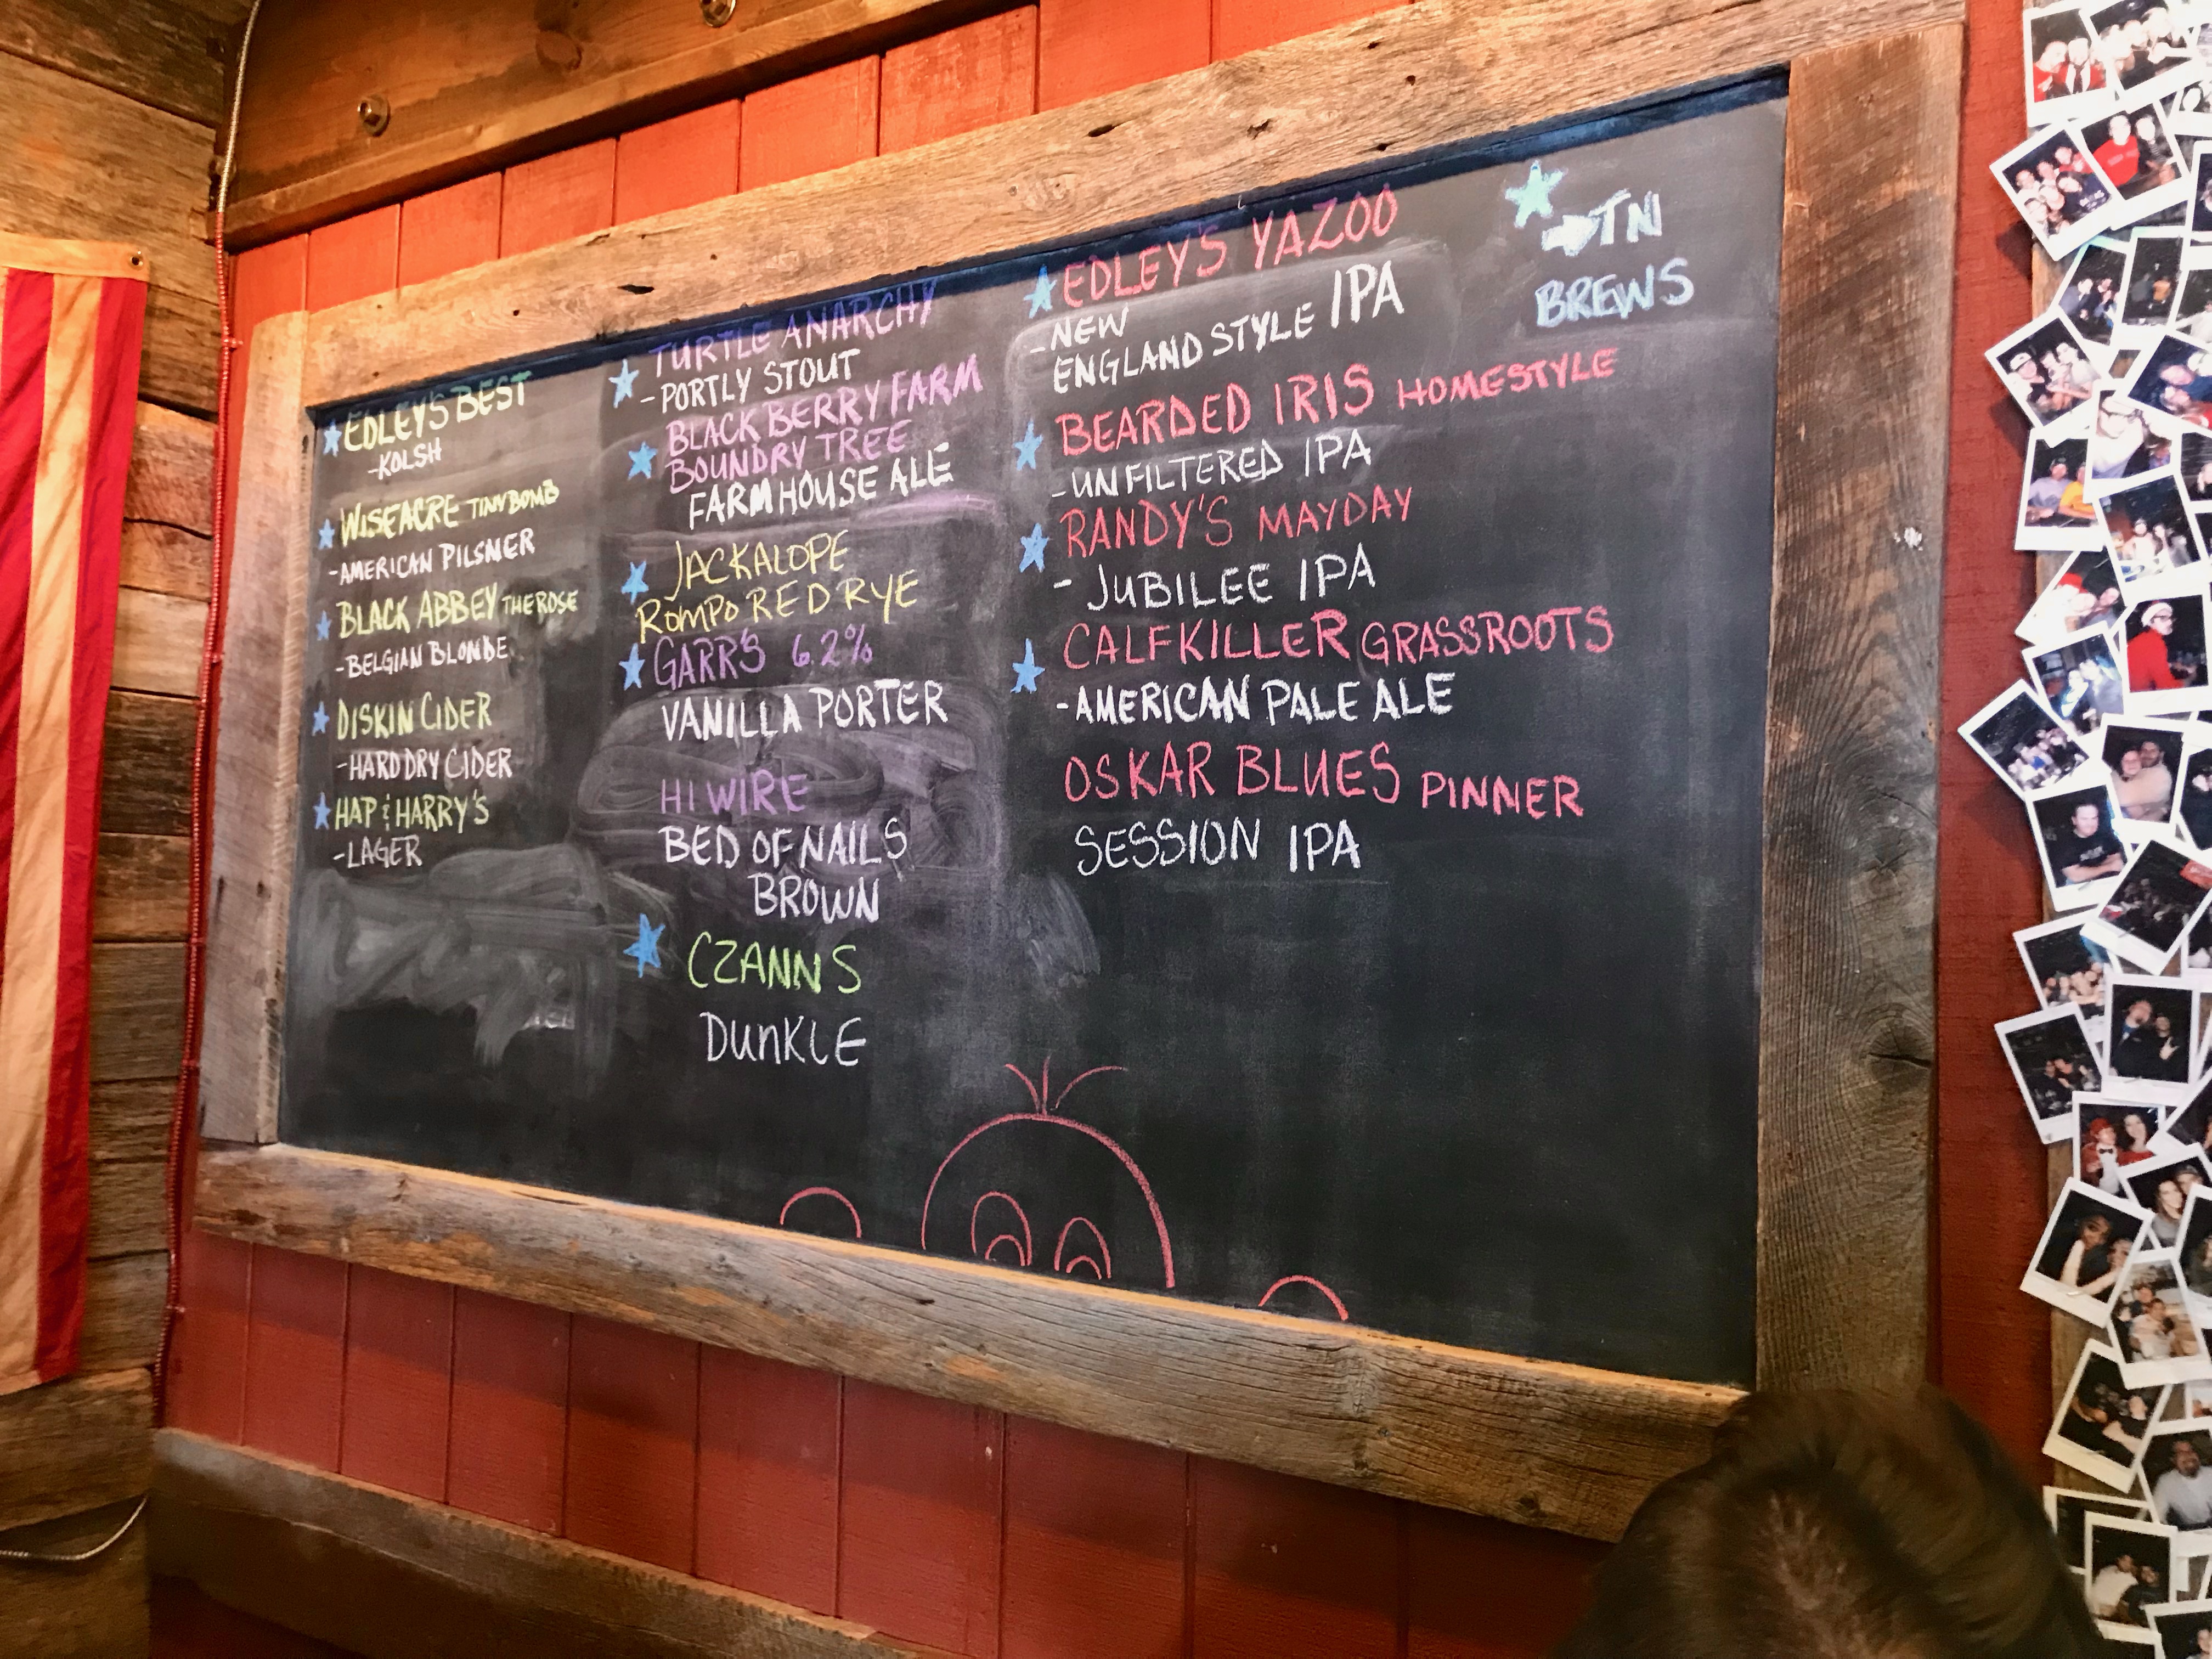 EDLEY'S BEST
-KOLSH
WISEACRE TINY BOMB
-AMERICAN PILSNER
BLACK ABBEY THE ROSE
-BELGIAN BLONDE
DISKIN CIDER
-HARD DRY CIDER
HAP & HARRY'S
-LAGER
TURTLE ANARCHY
-PORTLY STOUT
BLACK BERRY FARM
BOUNDRY TREE
FARM HOUSE ALE
JACKALOPE
ROMPO RED RYE
GARR'S 6.2%
VANILLA PORTER
HI WIRE
BED OF NAILS
BROWN
CZANNS
DUNKLE
EDLEY'S YAZOO
-NEW
ENGLAND STYLE IPA
BEARDED IRIS HOMESTYLE
-UNFILTERED IPA
RANDY'S MAYDAY
- JUBILEE IPA
CALFKILLER GRASSROOTS
-AMERICAN PALE ALE
OSKAR BLUES PINNER
SESSION IPA
TN
BREWS